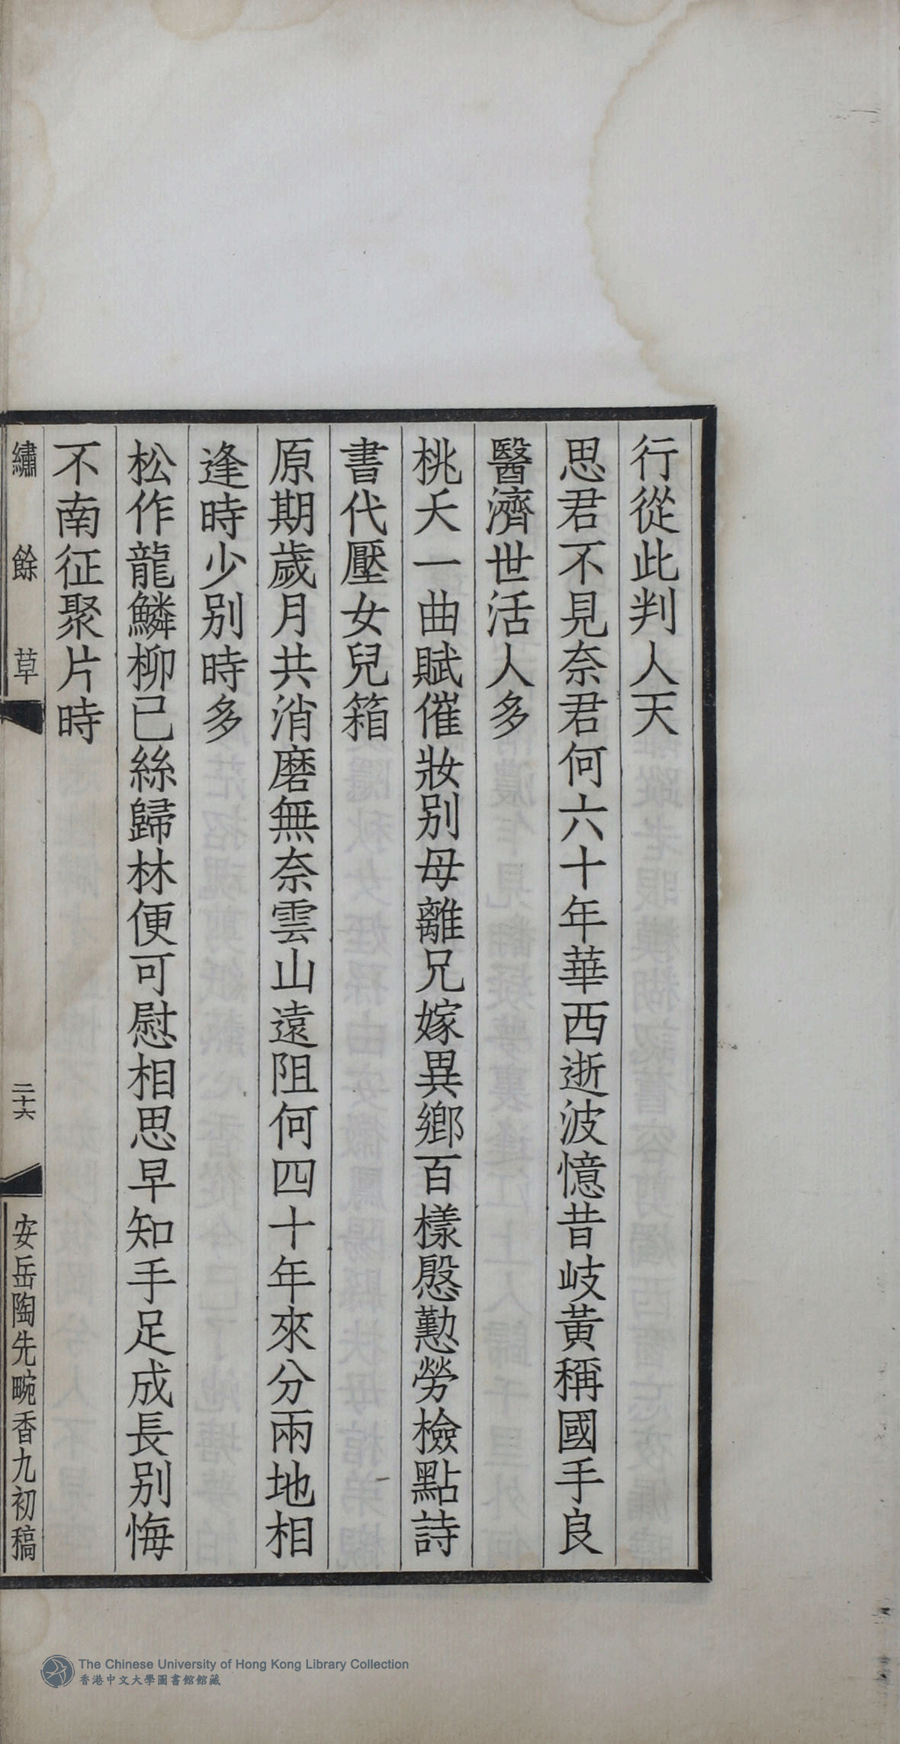 行從此判人天
思君不見奈君何六十年華西逝波憶昔岐黃稱國手良
醫濟世活人多
桃夭一曲賦催妝別母離兄嫁異鄉百樣慇懃勞檢點詩
書代壓女兒箱
原期歲月共消磨無奈雲山遠阻何四十年來分兩地相
逢時少別時多
松作龍鱗柳已絲歸林便可慰相思早知手足成長別悔
不南征聚片時
繡餘草
二十六
安岳陶先畹香九初稿
The Chinese University of Hong Kong Library Collection
香港中文大學圖書館館藏